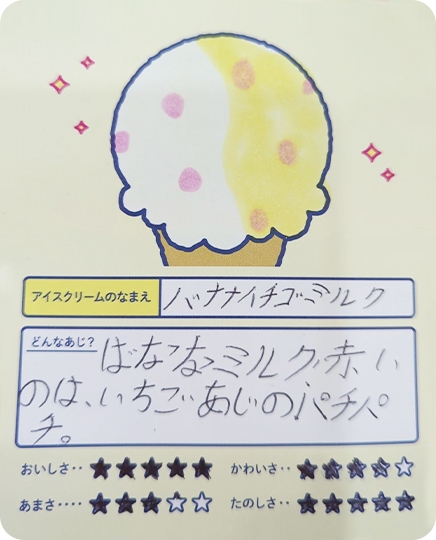 アイスクリームのなまえ バナナイチゴミルク
どんなあじ? ばななミルク、赤い
のは、いちごあじのパチパ
チ。
おいしさ‥★★★★★ かわいさ‥★★★★☆
あまさ‥‥★★★☆☆ たのしさ‥★★★★★